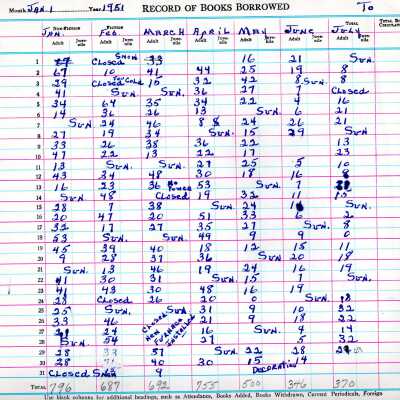 Month Jan 1 Year 1951 RECORD OF BOOKS BORROWED To
Non-Fiction Fiction Total
JAN. FEB. MARCH APRIL MAY JUNE JULY
Adult Juvenile Adult Juvenile Adult Juvenile Adult Juvenile Adult Juvenile Adult Juvenile Adult Juvenile
1 Closed Snow 33 16 21 Sun.
2 67 10 41 44 25 19 8
3 29 Closed Too Cold 10 32 42 8 Sun. 8
4 41 Sun. Sun. 36 27 7 Closed
5 34 64 35 34 22 4 16
6 14 36 26 13 Sun. 6 21
7 Sun. 24 46 8 24 26 21
8 27 19 34 Sun. 15 29 Sun.
9 33 26 38 36 22 13
10 47 22 13 22 17 23
11 13 Sun. Sun. 27 25 5 10
12 43 34 48 30 18 16 8
13 16 23 36 No Power 53 Sun. 7
14 Sun. 48 Closed 19 32 11 10
15 28 7 38 Sun. 24 Sun.
16 20 47 20 51 33 6 2
17 32 17 27 35 27 Sun. 8
18 53 Sun. Sun. 49 9 9 0
19 45 39 40 18 12 15 11
20 9 28 37 36 Sun. 20 18
21 Sun. 13 46 19 24 16 19
22 41 30 31 Sun. 15 7 Sun.
23 41 43 30 48 16 19
24 28 Closed 26 20 0 Sun. 18
25 25 Sun. Sun. 31 9 10 32
26 33 46 21 9 18 22
27 24 16 Sun. 4 14
28 Sun. 54 21 5 32
29 28 51 Sun. 22 28
30 28 40 30 15 14
31 Closed 9 DECORATION
CLOSED NEW FURNACE INSTALLED
TOTAL 796 687 692 755 500 376 370
Use blank columns for additional headings, such as Attendants, Books Added, Books Withdrawn, Current Periodicals, Foreign